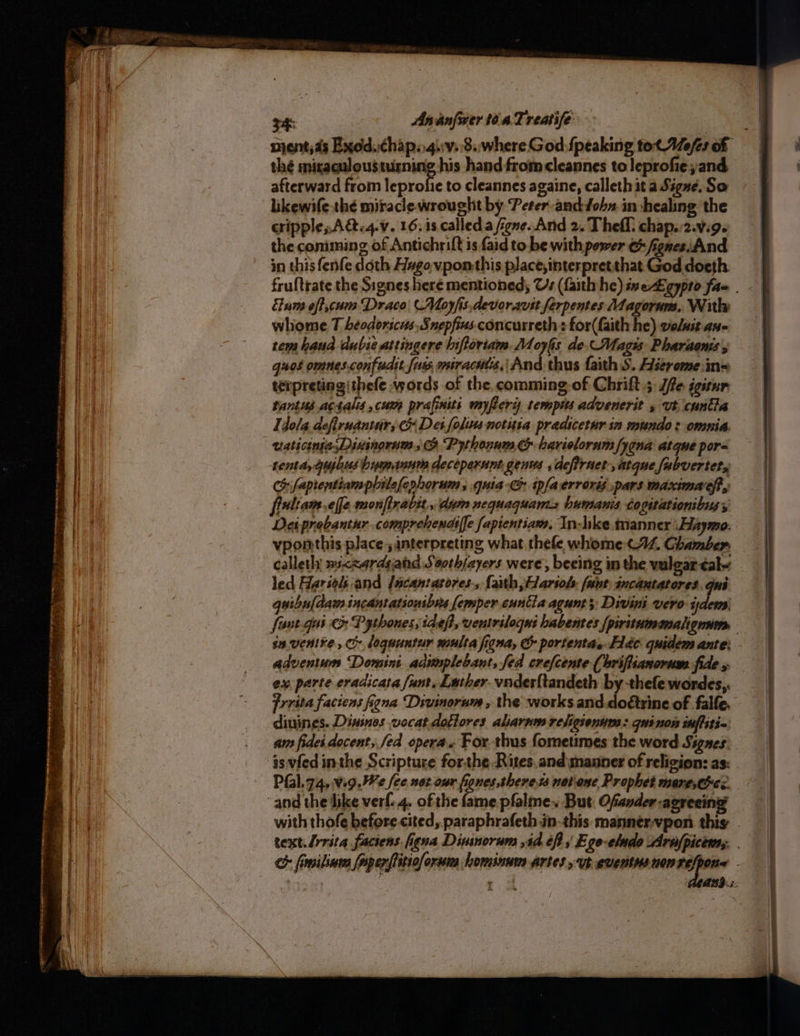 34 An answer to a Treatise
ment, as Exod. chap. 4. v. 8. where God speaking to Moses of
thé miraculous turning his hand from cleannes to leprosie, and
afterward from leprosie to cleannes againe, calleth it a Signe. So
likewise the miracle wrought by Peter and John in healing the
cripple, Act. 4. v. 16. is called a signe. And 2. Thess. chap. 2. v. 9.
the comming of Antichrist is said to be with power & signes. And
in this sense doth Hugo vpon this place, interpret that God doeth
frustrate the Signes here mentioned; Vs (saith he) in Ægypto fa-
ctum est, cum Draco Moysis devoravit serpentes Magorum. With
whome Theodoricus Snepfius concurreth: for (saith he) voluit au-
tem haud dubiè attingere historiam Moysis de Magis Pharaonis,
quos omnes confudit suis miraculis. And thus saith S. Hierome in-
terpreting these words of the comming of Christ; Iste igitur
tantus ac talis, cum præfiniti mysterij tempus advenerit, vt cuncta
Idola destruantur, & Dei solius notitia predicetur in mundo: omnia
vaticinia Divinorum, & Pythonum & hariolorum sygna atque por-
tenta, quibus humanum deceperunt genus, destruet, atque subvertet,
& sapientiam philosophorum, quia & ipsa erroris pars maxima est,
stultam esse monstrabit, dum nequaquam humanis cogitationibus
Dei probantur comprehendisse sapientiam. In like manner Haymo
vpon this place, interpreting what these whome M. Chamber
calleth wizzards and Soothsayers were, beeing in the vulgar cal-
led Harioli and Incantatores, saith, Harioli sunt incantatores qui
quibusdam incantationibus semper cuncta agunt; Divini vero ijdem
sunt qui & Pythones, id est, ventriloqui habentes spiritum malignum
in ventre, & loquuntur multa signa, & portenta. Hæc quidem ante
adventum Domini adimplebant, sed crescente Christianorum fide
ex parte eradicata sunt. Luther vnderstandeth by these wordes,
Irrita faciens signa Divinorum, the works and doctrine of false
diuines. Divinos vocat doctores aliarum religionum: qui non iustiti-
am fidei docent, sed opera. For thus sometimes the word Signes
is vsed in the Scripture for the Rites and manner of religion: as
Psal. 74. v. 9. We see not our signes, there is not one Prophet more, &c.
and the like vers. 4. of the same psalme. But Osiander agreeing
with those before cited, paraphraseth in this manner vpon this
text. Irrita faciens signa Divinorum, id est, Ego eludo Aruspicum,
& similium superstitiosorum hominum artes, vt eventus non respon-
deant.